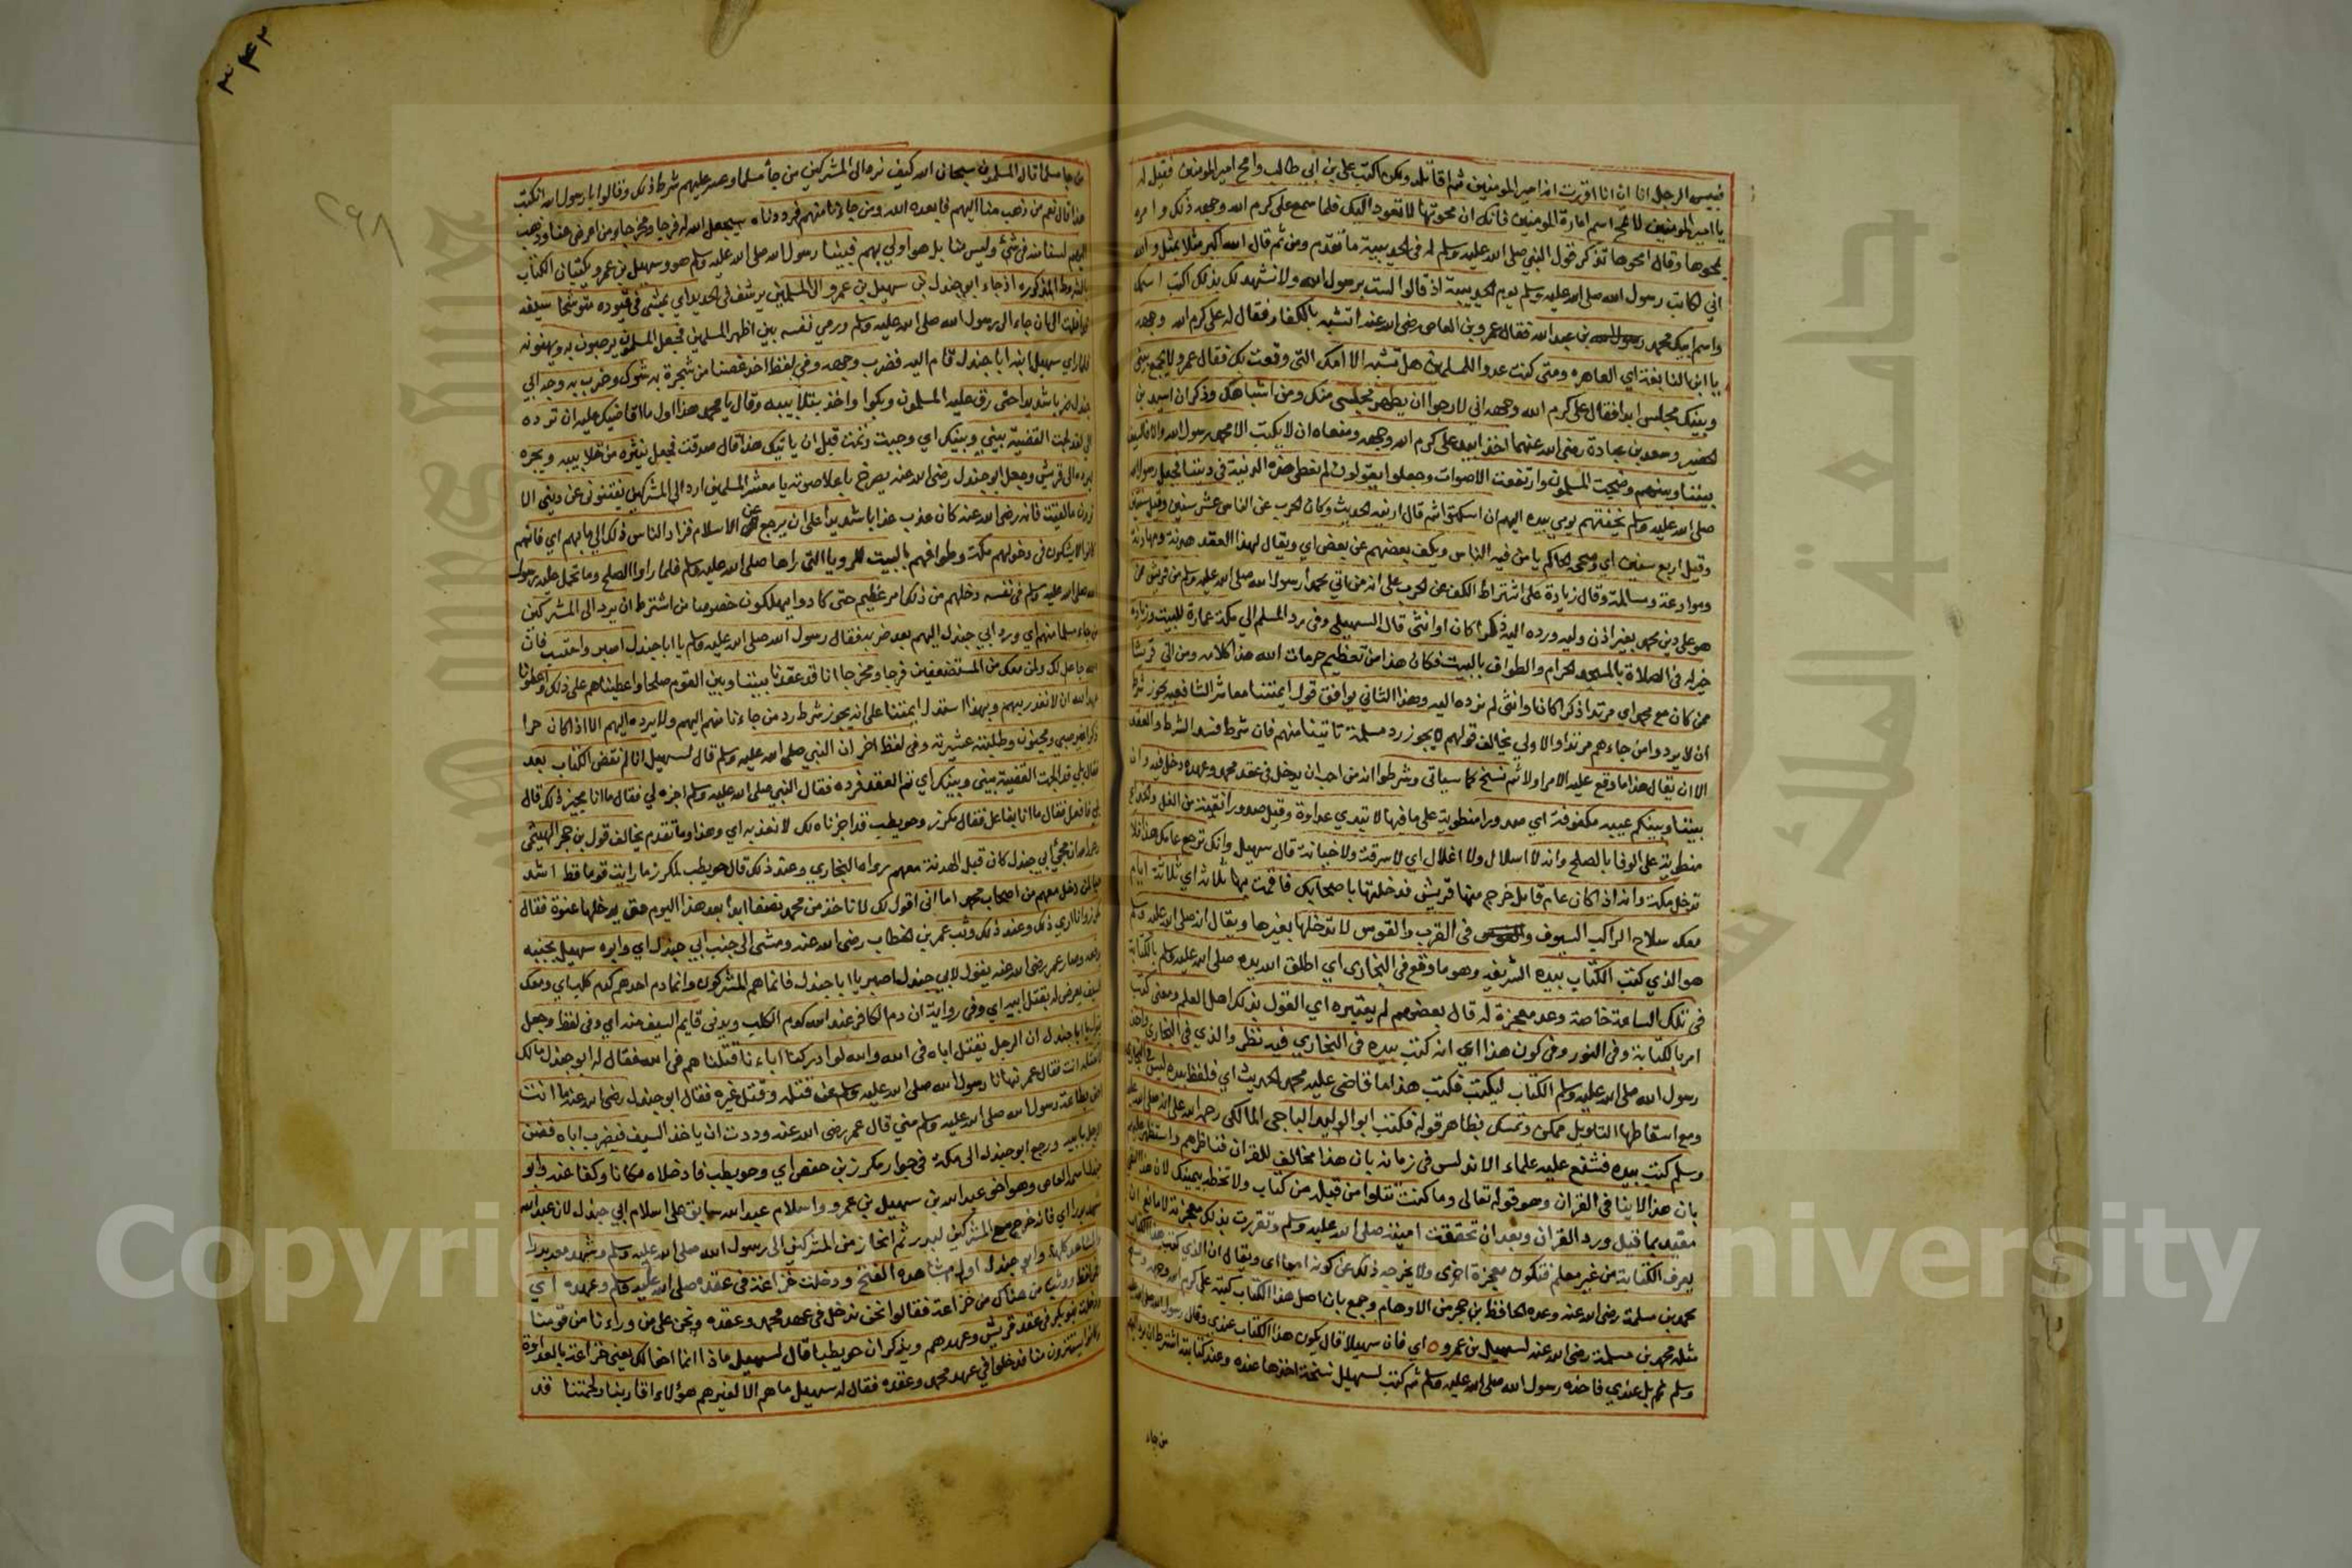 فبيس الرجل انا ان انا اقررت انه امير المومنين ثم اقاتله ولكن اكتب علي بن ابي طالب وامح امير المومنين فقيل له
يا امير المومنين لا تمح اسم امارة المومنين فانك ان محوتها لا تعود اليك فلما سمع علي كرم الله وجهه ذلك وامره
بمحوها وقال امحوها تذكر قول النبي صلى الله عليه وسلم له في الحديبية ما تقدم ومن ثم قال الله اكبر مثلا بمثل والله
اني لكاتب رسول الله صلى الله عليه وسلم يوم الحديبية اذ قالوا لست برسول الله ولا نشهد لك بذلك اكتب اسمك
واسم ابيك محمد بن عبد الله فقال عمرو بن العاص رضي الله عنه اتشبه بالكفار فقال له علي كرم الله وجهه
يا ابن النابغة اي العاهره ومتى كنت عدوا للمسلمين هل تشبه الا امك التي وقعت بك فقال عمرو لا يجمع بيني
وبينك مجلس ابدا فقال علي كرم الله وجهه اني لارجوا ان يطهر مجلسي منك ومن اشباهك وذكر ان اسيد بن
الحضير وسعد بن عبادة رضي الله عنهما اخذا بيد علي كرم الله وجهه ومنعاه ان لا يكتب الا محمد رسول الله والا فالسيف
بيننا وبينهم وضجت المسلمون وارتفعت الاصوات وجعلوا يقولون لم نعطي هذه الدنية في ديننا فجعل رسول الله
صلى الله عليه وسلم يخفضهم يومي بيده اليهم ان اسكتوا ثم قال اربعه الحديث وكان الحرب عن الناس عشر سنين وقيل سنتين
وقيل اربع سنين اي وصححه الحاكم يامن فيه الناس ويكف بعضهم عن بعض اي ويقال لهذا العقد هدنة ومهادنة
وموادعة ومسالمة وقال زيادة على اشتراط الكف عن الحرب على انه من اتي محمدا رسول الله صلى الله عليه وسلم من قريش ممن
هو على دين محمد بغير اذن وليه ورده اليه ذكرا كان او انثى قال السهيلي وفي رد المسلم الى مكة عمارة للبيت وزيادة
خير له في الصلاة بالمسجد الحرام والطواف بالبيت فكان هذا من تعظيم حرمات الله هذا كلامه ومن اتي قريشا
ممن كان مع محمد اي مرتدا ذكرا كان او انثى لم نرده اليه وهذا الثاني يوافق قول ايمتنا معاشر الشافعيه يجوز شرط
ان لا يردوا من جاءهم مرتدا والاولي يخالف قولهم لا يجوز رد مسلمة تاتينا منهم فان شرط فسد الشرط والعقد
الا ان يقال هذا ما وقع عليه الامر اولا ثم نسخ كما سياتي وشرطوا انه من احب ان يدخل في عقد محمد وعهده دخل فيه وان
بيننا وبينكم عيبه مكفوفة اي صدورا منطوية على ما فيها لا تبدي عداوة وقيل صدورا نقية من الغل والخداع
منطوية على الوفا بالصلح وانه لا اسلال ولا اغلال اي لا سرقة ولا خيانة قال سهيل وانك ترجع عامك هذا فلا
تدخل مكة وانه اذا كان عام قابل خرج منها قريش فدخلتها باصحابك فاقمت بها ثلاثا اي ثلاثة ايام
معك سلاح الراكب السيوف في القرب والقوس لا تدخلها بغيرها ويقال انه صلى الله عليه وسلم
هو الذي كتب الكتاب بيده الشريفه وهو ما وقع في البخاري اي اطلق الله يده صلى الله عليه وسلم بالكتابة
في تلك الساعة خاصة وعد معجزة له قال بعضهم لم يعتبره اي القول بذلك اهل العلم ومعنى كتب
امر بالكتابة وفي النور وفي كون هذا اي انه كتب بيده في البخاري فيه نظر والذي في البخاري واخذ
رسول الله صلى الله عليه وسلم الكتاب ليكتب فكتب هذا ما قاضى عليه محمد الحديث اي فلفظ بيده ليس في البخاري
ومع اسقاطها التاويل ممكن وتمسك بظاهر قوله فكتب ابو الوليد الباجي المالكي رحمه الله على انه صلى الله عليه
وسلم كتب بيده فشنع عليه علماء الاندلس في زمانه بان هذا مخالف للقران فناظرهم واستظهر عليهم
بان هذا لا ينافي القران وهو قوله تعالى وما كنت تتلوا من قبله من كتاب ولا تخطه بيمينك لان هذا النفي
مقيد بما قبل ورود القران وبعد ان تحققت امنيته صلى الله عليه وسلم وتقررت بذلك معجزته لا مانع ان
يعرف الكتابة من غير معلم فتكون معجزة اخرى ولا يخرجه ذلك عن كونه اميا اي ويقال ان الذي كتب هذا الكتاب
محمد بن مسلمة رضي الله عنه وعده الحافظ بن حجر من الاوهام وجمع بان اصل هذا الكتاب كتبه علي كرم الله وجهه ونسخ
مثله محمد بن مسلمة رضي الله عنه لسهيل بن عمرو اي فان سهيلا قال يكون هذا الكتاب عندي وقال رسول الله صلى الله عليه
وسلم ثم بل عندي فاخذه رسول الله صلى الله عليه وسلم ثم كتب لسهيل نسخة اخذها عنده وعند كتابة اشتراط ان يرد اليهم
من جاء
٣٤٢
٢٦٨
من جا مسلما قال المسلمون سبحان الله كيف نرد الى المشركين من جا مسلما وعسر عليهم شرط ذلك وقالوا يا رسول الله انكتب
هذا قال نعم من ذهب منا اليهم فابعده الله ومن جاءنا منهم فرددناه سيجعل الله له فرجا ومخرجا ومن اعرض عنا وذهب
اليهم لسنا منه في شي وليس منا بل هو اولي بهم فبينا رسول الله صلى الله عليه وسلم هو وسهيل بن عمرو يكتبان الكتاب
بالشروط المذكوره اذ جاء ابو جندل بن سهيل بن عمرو الى المسلمين يرسف في الحديد اي يمشي في قيوده متوشحا سيفه
الى ان جاء الى رسول الله صلى الله عليه وسلم ورمى نفسه بين اظهر المسلمين فجعل المسلمون يرحبون به ويهنونه
فلما راي سهيل ابنه ابا جندل قام اليه فضرب وجهه وفي لفظ اخذ غصنا من شجرة به شوك وضرب به وجه ابي
جندل ضربا شديدا حتى رق عليه المسلمون وبكوا واخذ بتلابيبه وقال يا محمد هذا اول ما اقاضيك عليه ان ترده
الي لقد لجت القضية بيني وبينك اي وجبت وتمت قبل ان ياتيك هذا قال صدقت فجعل ينثره من تلابيبه ويجره
ليرده الى قريش وجعل ابو جندل رضي الله عنه يصرخ باعلا صوته يا معشر المسلمين ارد الى المشركين يفتنوني عن ديني الا
ترون ما لقيت فانه رضي الله عنه كان عذب عذابا شديدا على ان يرجع عن الاسلام فزاد الناس ذلك الي ما بهم اي فانهم
كانوا لا يشكون في دخولهم مكة وطوافهم بالبيت للرويا التي راها صلى الله عليه وسلم فلما راوا الصلح وما تحمل عليه رسول
الله صلى الله عليه وسلم في نفسه دخلهم من ذلك امر عظيم حتى كادوا يهلكون خصوصا من اشتراط ان يرد الى المشركين
من جاء مسلما منهم اي ورد ابي جندل اليهم بعد ضربه فقال رسول الله صلى الله عليه وسلم يا ابا جندل اصبر واحتسب فان
الله جاعل لك ولمن معك من المستضعفين فرجا ومخرجا انا قد عقدنا بيننا وبين القوم صلحا واعطيناهم على ذلك واعطونا
عهد الله ان لا نغدر بهم وبهذا استدل ايمتنا على انه يجوز شرط رد من جاءنا منهم اليهم ولا يرده اليهم الا اذا كان حرا
ذكرا غير صبي ومجنون وطلبته عشيرته وفي لفظ اخر ان النبي صلى الله عليه وسلم قال لسهيل انا لم نقض الكتاب بعد
فقال بلي قد لجت القضية بيني وبينك اي تم العقد فرده فقال النبي صلى الله عليه وسلم اجزه لي فقال ما انا مجيز ذلك قال
بلى فافعل فقال ما انا بفاعل فقال مكرز وحويطب قد اجزناه لك لا نعذبه اي وهذا وما تقدم يخالف قول بن حجر الهيثمي
مجي ابي جندل كان قبل الهدنة معهم رواه البخاري وعند ذلك قال حويطب لمكرز ما رايت قوما قط اشد
حبا لمن دخل معهم من اصحاب محمد اما اني اقول لك لا ناخذ من محمد نصفا ابدا بعد هذا اليوم حتى يدخلها عنوة فقال
مكرز وانا اري ذلك وعند ذلك وثب عمر بن الخطاب رضي الله عنه ومشى الى جنب ابي جندل اي وابوه سهيل بجنبه
وصار عمر رضي الله عنه يقول لابي جندل اصبر يا ابا جندل فانما هم المشركون وانما دم احدهم كدم كلب اي ومعك
السيف يعرض له بقتل ابيه اي وفي رواية ان دم الكافر عند الله كدم الكلب ويدني قايم السيف منه اي وفي لفظ وجعل
يقول يا ابا جندل ان الرجل يقتل اباه في الله والله لو ادركنا اباءنا قتلناهم في الله فقال له ابو جندل مالك
لا تقتله انت فقال عمر نهانا رسول الله صلى الله عليه وسلم عن قتله وقتل غيره فقال ابو جندل رضي الله عنه ما انت
احق بطاعة رسول الله صلى الله عليه وسلم مني قال عمر رضي الله عنه وددت ان ياخذ السيف فيضرب اباه فضن
الرجل بابيه ورجع ابو جندل الى مكة في جوار مكرز بن حفص اي وحويطب فادخلاه مكانا وكفا عنه وابو
جندل اسمه العاص وهو اخو عبد الله بن سهيل بن عمرو واسلام عبد الله سابق على اسلام ابي جندل لان عبد الله
شهد بدرا اي فانه خرج مع المشركين لبدر ثم انحاز من المشركين الى رسول الله صلى الله عليه وسلم وشهد معه بدرا
والمشاهد كلها وابو جندل اول مشاهده الفتح ودخلت خزاعة في عقده صلى الله عليه وسلم وعهده اي
من هناك من خزاعة فقالوا نحن ندخل في عهد محمد وعقده ونحن على من وراءنا من قومنا
ودخلت بنو بكر في عقد قريش وعهدهم ويذكر ان حويطبا قال لسهيل ماذا انما اخوالك يعني خزاعة بالعداوة
وكانوا يستترون منا فدخلوا في عهد محمد وعقده فقال له سهيل ما هم الا كغيرهم هؤلاء اقاربنا ولحمتنا قد
Copyright © King Saud University
جامعة الملك سعود